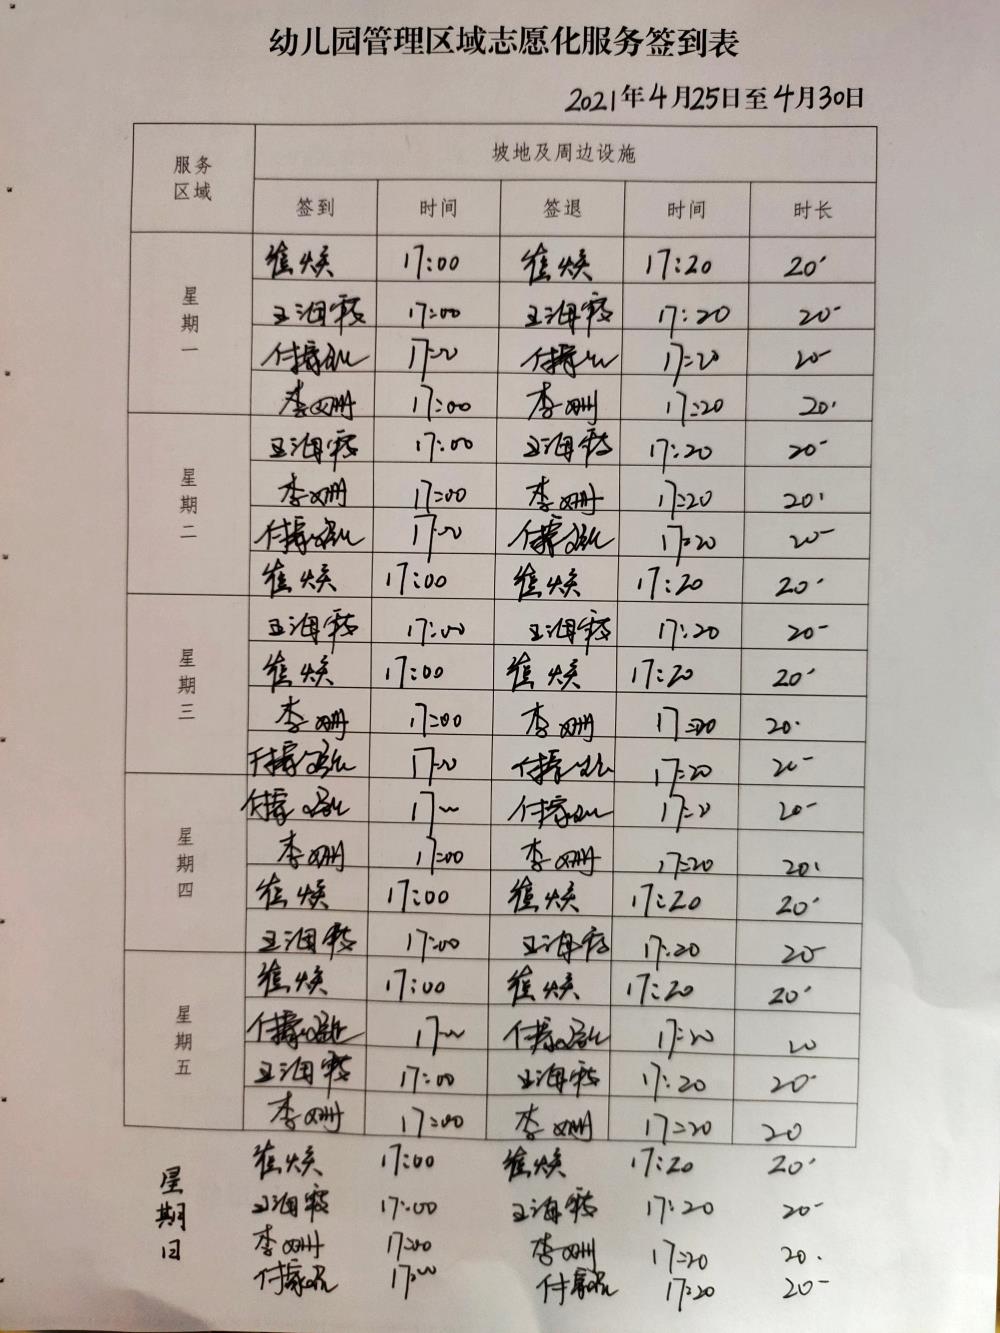 幼儿园管理区域志愿化服务签到表
2021年4月25日至4月30日
服务区域 坡地及周边设施
签到 时间 签退 时间 时长
星期一
崔焕 17:00 崔焕 17:20 20'
王海霞 17:00 王海霞 17:20 20'
付 17:00 付 17:20 20'
李姗 17:00 李姗 17:20 20'
星期二
王海霞 17:00 王海霞 17:20 20'
李姗 17:00 李姗 17:20 20'
付 17:00 付 17:20 20'
崔焕 17:00 崔焕 17:20 20'
星期三
王海霞 17:00 王海霞 17:20 20'
崔焕 17:00 崔焕 17:20 20'
李姗 17:00 李姗 17:20 20'
付 17:00 付 17:20 20'
星期四
付 17:00 付 17:20 20'
李姗 17:00 李姗 17:20 20'
崔焕 17:00 崔焕 17:20 20'
王海霞 17:00 王海霞 17:20 20'
星期五
崔焕 17:00 崔焕 17:20 20'
付 17:00 付 17:20 20
王海霞 17:00 王海霞 17:20 20'
李姗 17:00 李姗 17:20 20
星期日
崔焕 17:00 崔焕 17:20 20'
王海霞 17:00 王海霞 17:20 20'
李姗 17:00 李姗 17:20 20'
付 17:00 付 17:20 20'